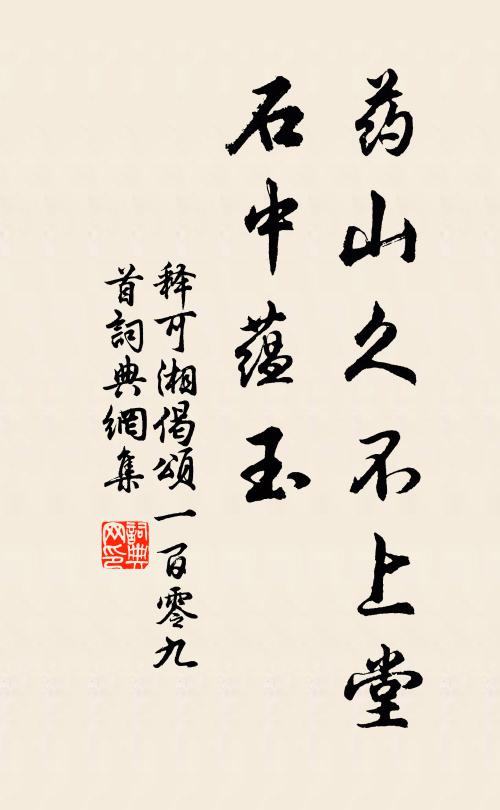 药山久不上堂
石中蕴玉
释可湘偈頌一百零九
首詞典網集
詞典
网印